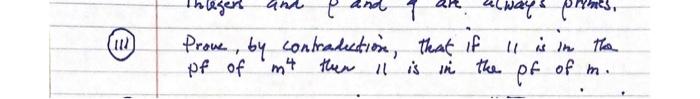 integers and p and q are always primes.
(iii) Prove, by contradiction, that if 11 is in the
pf of m⁴ then 11 is in the pf of m.